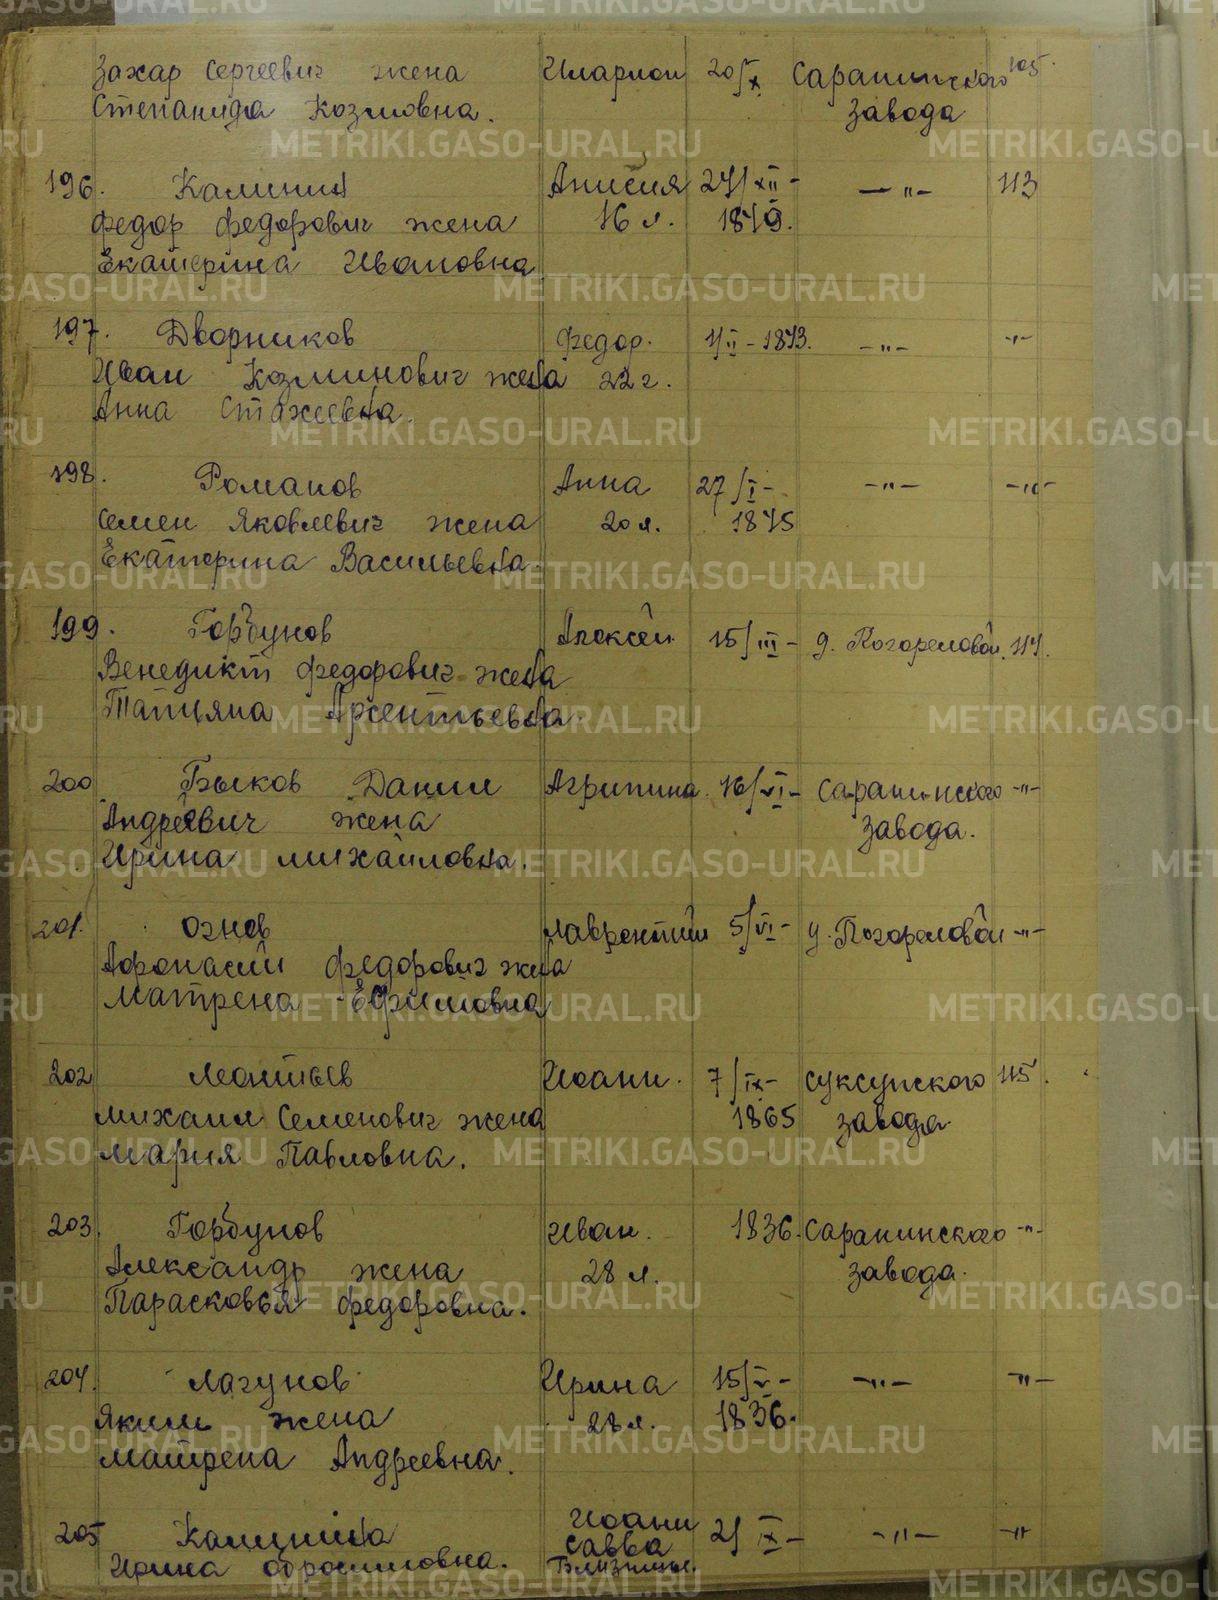 Захар Сергеевич жена Иларион 20/X Саранинского 105.
Степанида Козмовна. завода
196. Калинин Анисия 27/XII - —"— 113
Федор Федорович жена 16 л. 1879.
Екатерина Ивановна
197. Дворников Федор. 1/II - 1873. —"— -"-
Иван Козминович жена 22 г.
Анна Стахеевна.
198. Романов Анна 27/I - —"— -"-
Семен Яковлевич жена 20 л. 1875
Екатерина Васильевна.
199. Горбунов Алексей 15/III - д. Погореловой. 114.
Венедикт Федорович жена
Татьяна Арсентьевна.
200 Быков Данил Агрипина. 16/VI - Саранинского -"-
Андреевич жена завода.
Ирина Михайловна.
201. Огнев Лаврентий 5/VI - д. Погореловой -"-
Афонасий Федорович жена
Матрена Ефимовна
202 Леонтьев Иоанн. 7/IX - Суксунского 115.
Михаил Семенович жена 1865 завода.
Мария Павловна.
203. Горбунов Иван. 1836. Саранинского -"-
Александр жена 28 л. завода.
Парасковья Федоровна.
204. Лагунов Ирина 15/V - —"— -"-
Яким жена 28 л. 1836.
Матрена Андреевна.
205 Калинина Иоанн 2/IX - —"— -"-
Ирина Абросимовна. Савва
Близнецы.
METRIKI.GASO-URAL.RU